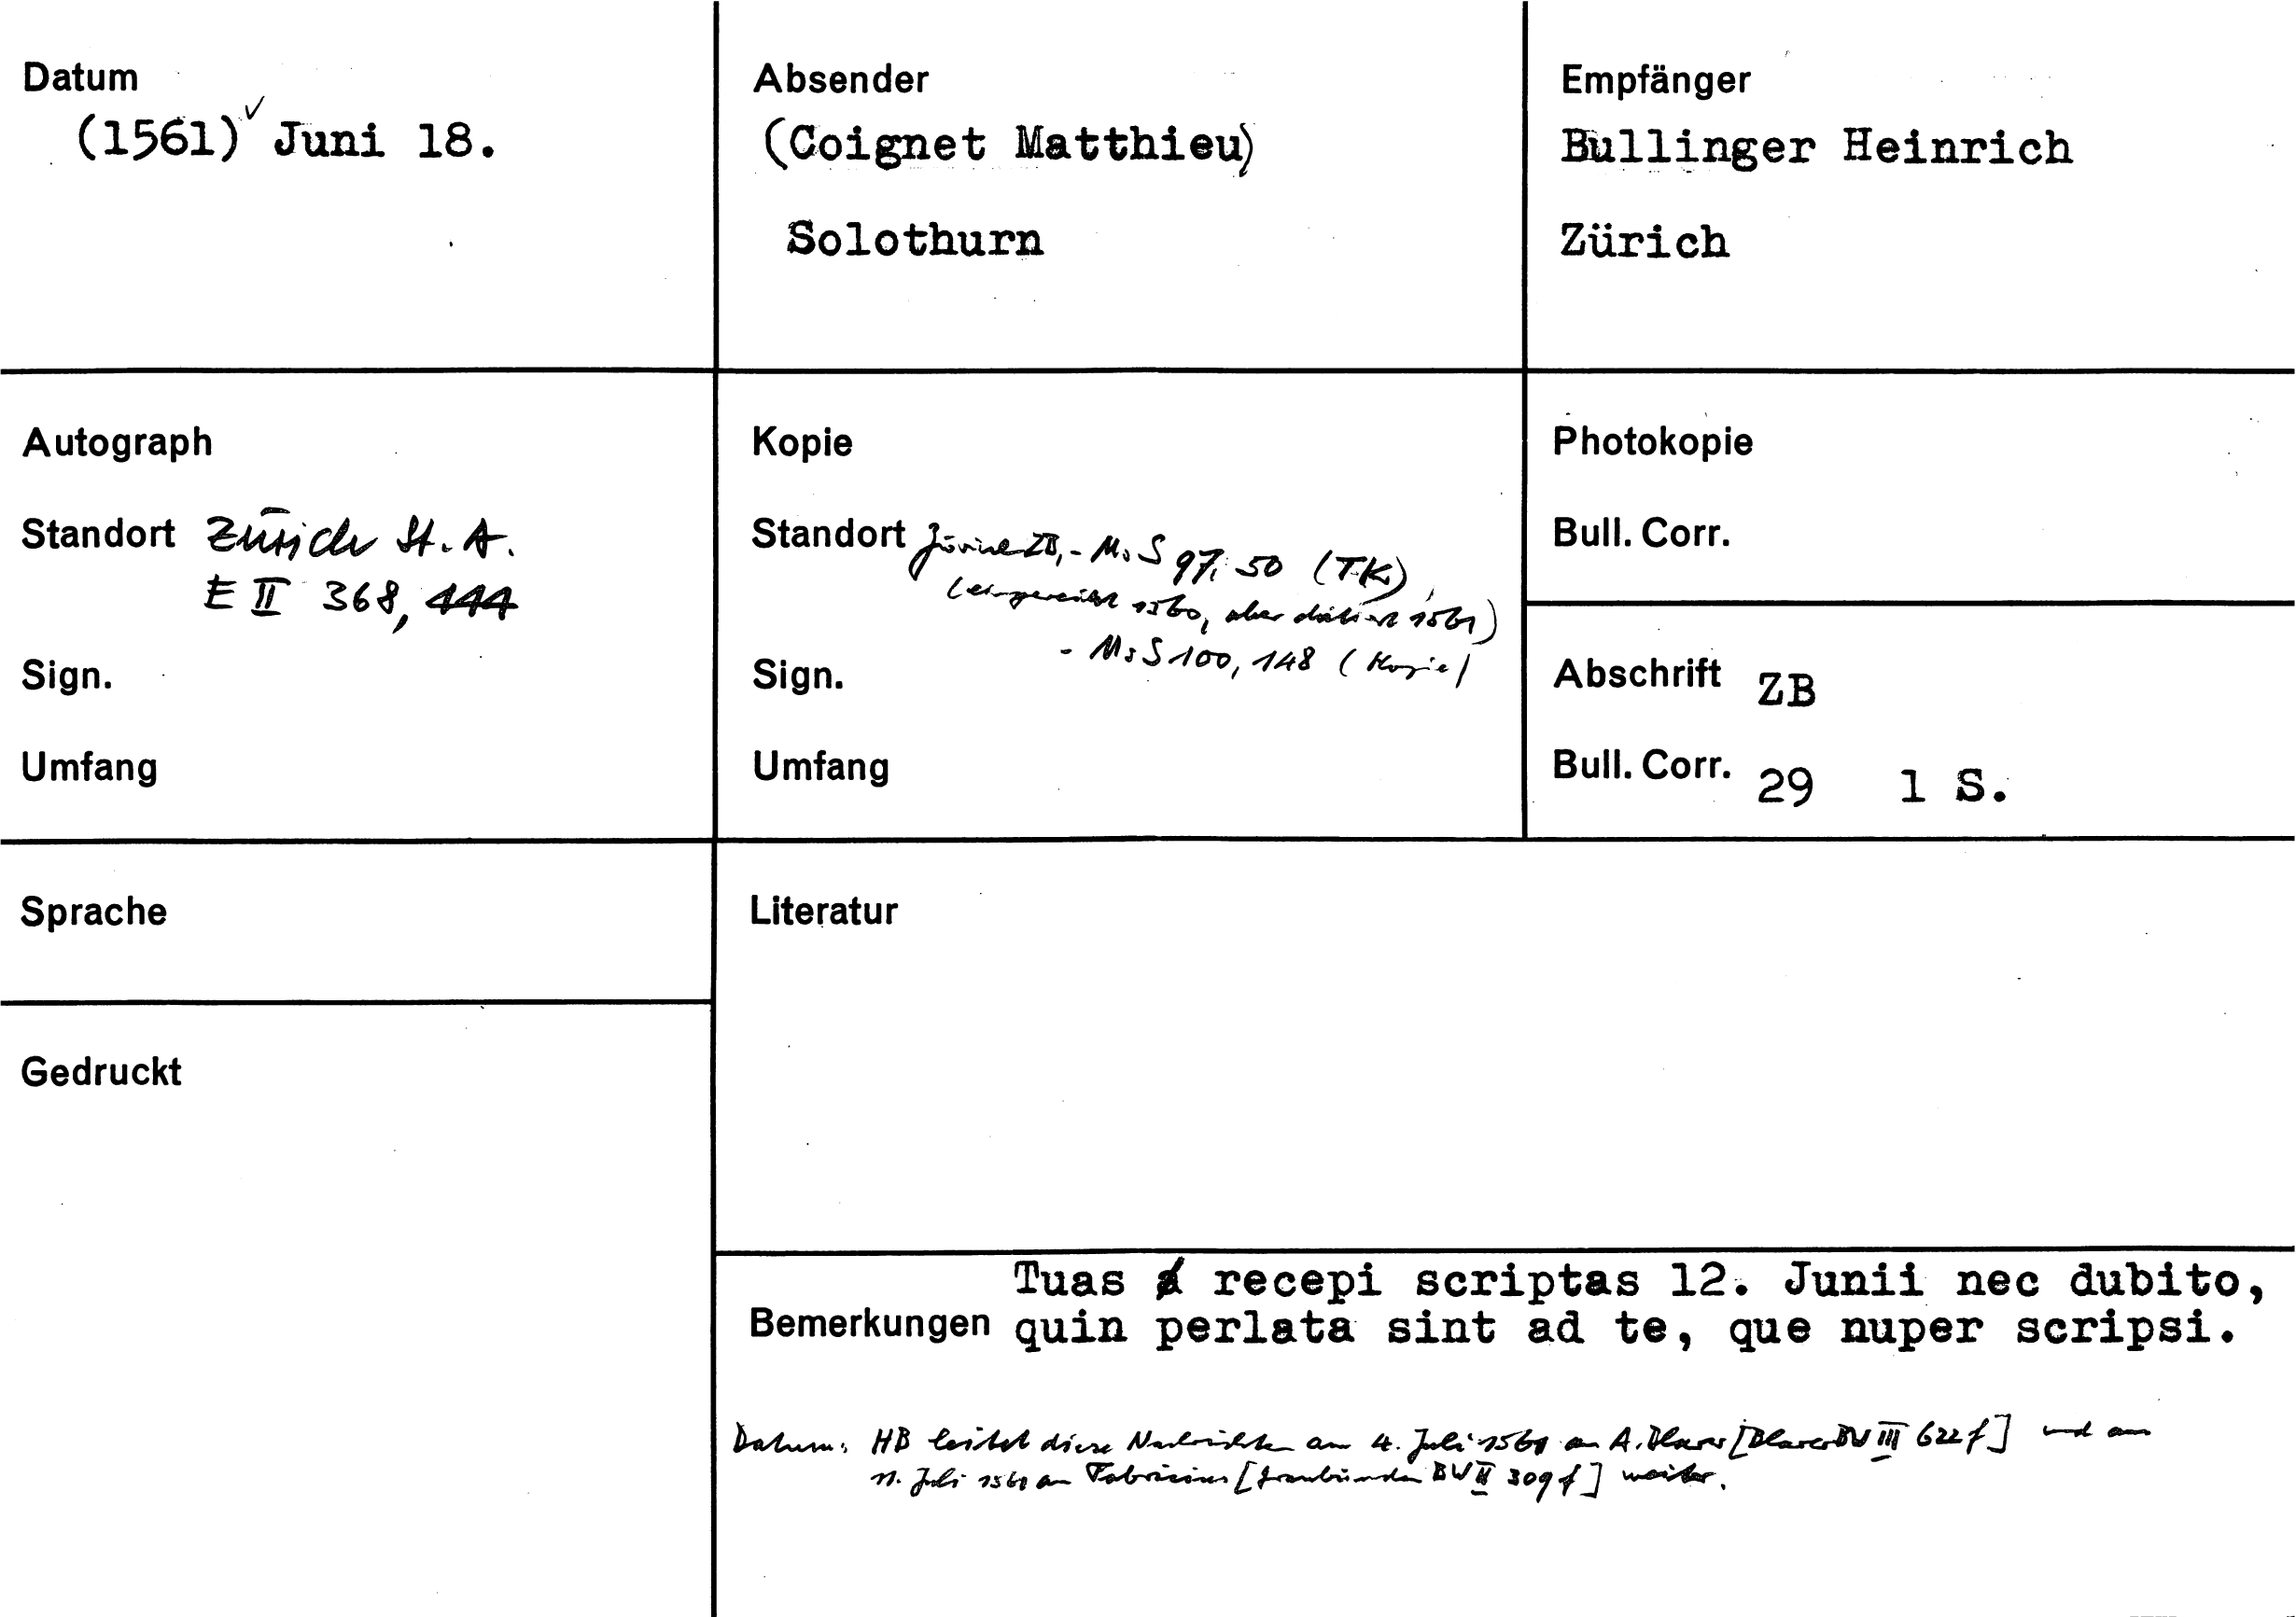 Datum
(1561) Juni 18.
Absender
(Coignet Matthieu)
Solothurn
Empfänger
Bullinger Heinrich
Zürich
Autograph
Standort Zürich St. A.
E II 368, 444
Sign.
Umfang
Kopie
Standort Zürich ZB, - Ms S 97, 50 (TK)
(eingereiht 1560, aber datiert 1561)
- Ms S 100, 148 (Kopie)
Sign.
Umfang
Photokopie
Bull. Corr.
Abschrift ZB
Bull. Corr. 29 1 S.
Sprache
Literatur
Gedruckt
Tuas recepi scriptas 12. Junii nec dubito,
Bemerkungen quin perlata sint ad te, que nuper scripsi.
Datum: HB leitet diese Nachrichten am 4. Juli 1561 an A. Blarer [Blarer BW III 622 f] und am
11. Juli 1561 an Fabricius [Graubünden BW II 309 f] weiter.